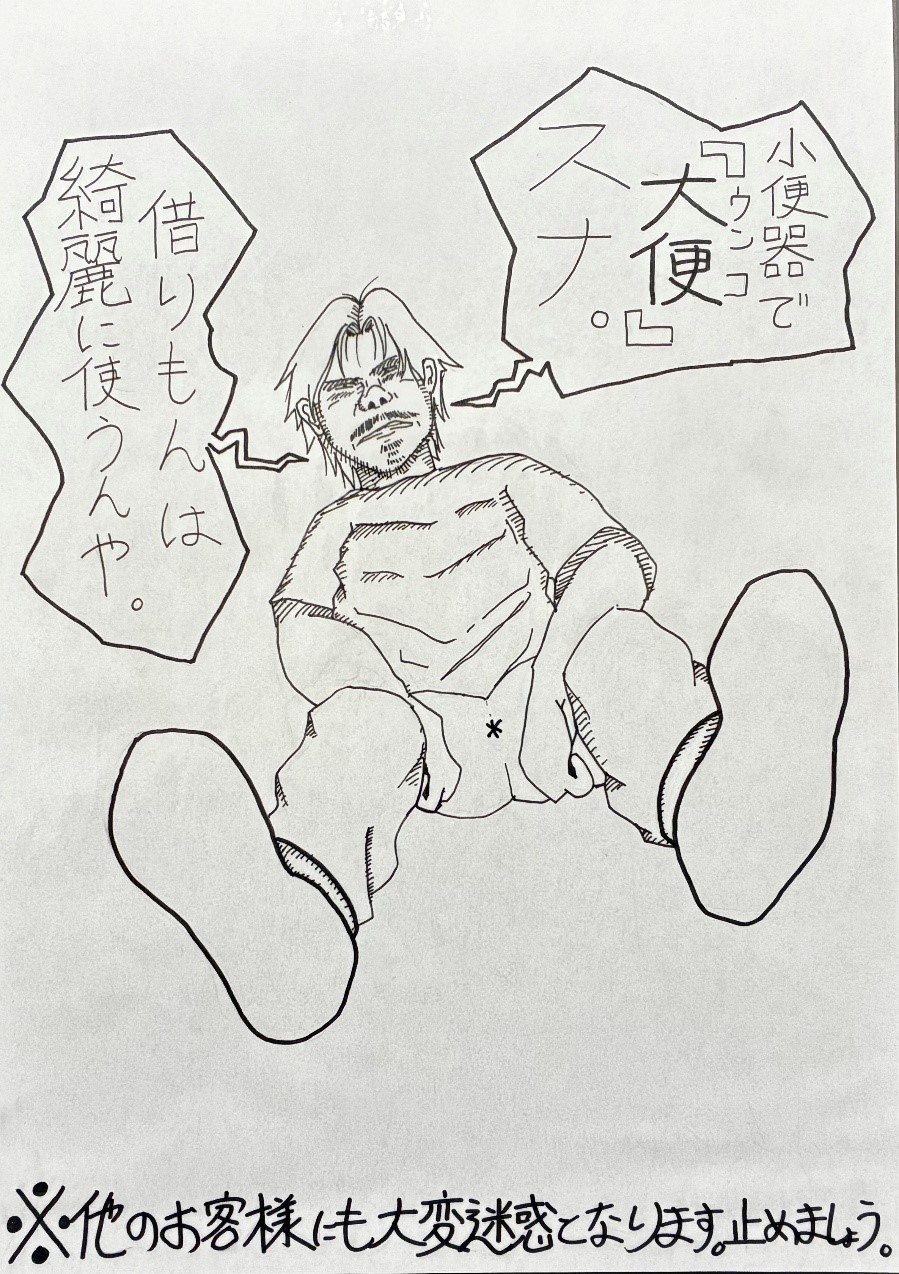 小便器で
『大便』
ウンコ
スナ。
借りもんは
綺麗に使うんや。
※他のお客様にも大変迷惑となります。止めましょう。